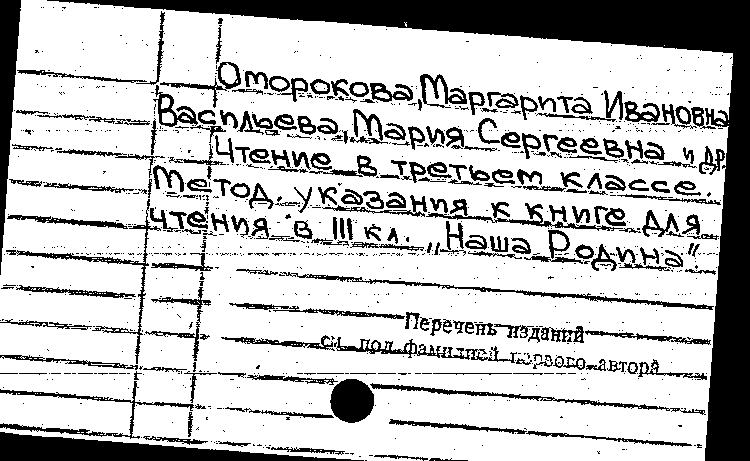 Оморокова, Маргарита Ивановна
Васильева, Мария Сергеевна и др.
Чтение в третьем классе.
Метод. указания к книге для
чтения в III кл. „Наша Родина“.
Перечень изданий
см. под фамилией первого автора